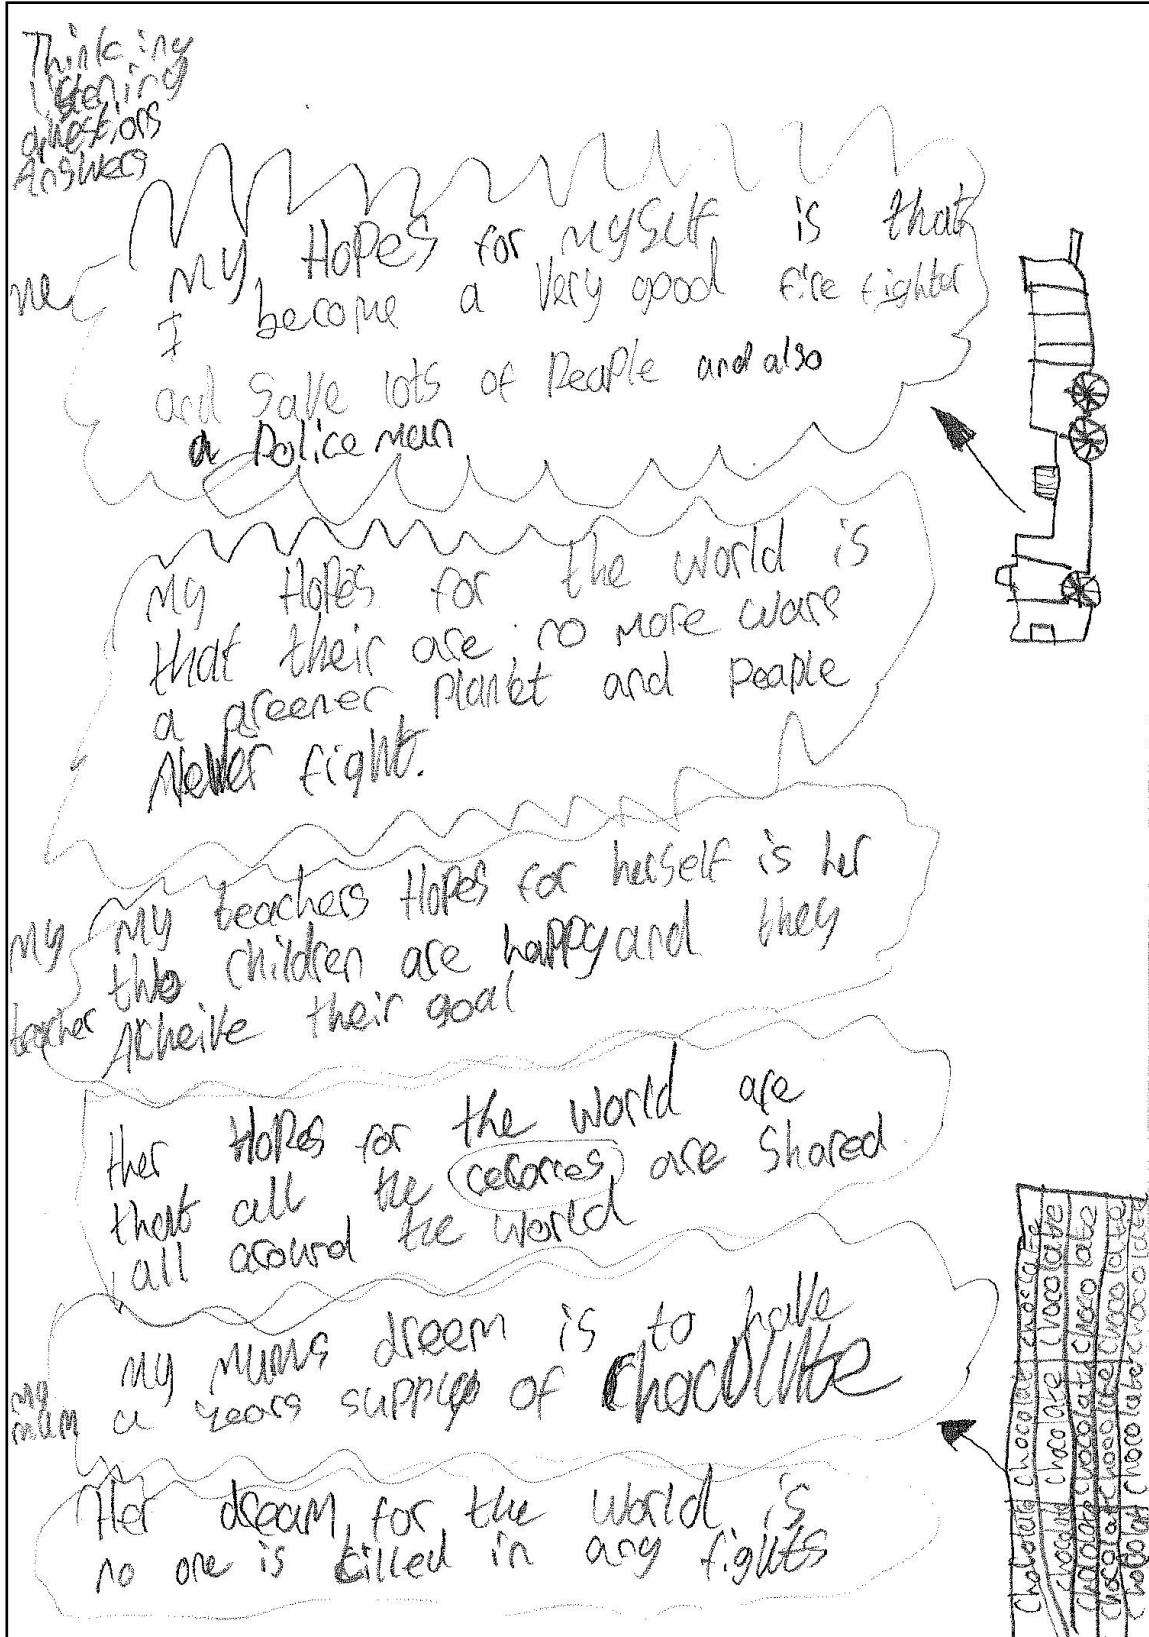 Thinking
Listening
questions
Answers
me
My HoPes for myself is that
I become a Very good fire fighter
and Save lots of Peaple and also
a Police man
my HoPes for the world is
that their are no more wars
a greener Planet and peaple
Never fight.
my teacher
my teachers HoPes for herself is her
two children are happy and they
Akheive their goal
Her HoPes for the world are
that all the are shared
all around the world
my mum
my mums dreem is to have
a years supply of chocolate
Her dream for the world is
no one is killed in any fights
Chocolate chocolate chocolate
chocolate chocolate chocolate
chocolate chocolate chocolate
chocolate chocolate chocolate
chocolate chocolate chocolate